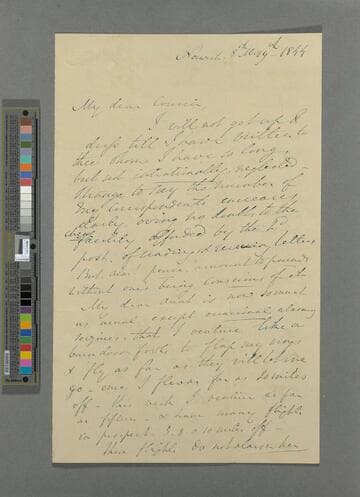 8th Augst 1844
My dear Cousin,
I will not get up &
dress till I have written to
thee whom I have so long
but not intentionally neglected
Strange to say the number of
my correspondents increases
daily owing no doubt to the
cheap facility afforded by the 1d
post of sending & receiving letters
But alas! pence amount to pounds
without ones being conscious of it
My dear Aunt is now somuch
as usual except occasional alarming
that I venture like a
barndoor fowl to flap my wings
& fly as far as they will let me
go - once I flew as far as 20 miles
off - this week I venture as far
as fifteen & have many flights
in prospect 5 & 10 miles off -
these flights do not alarm her